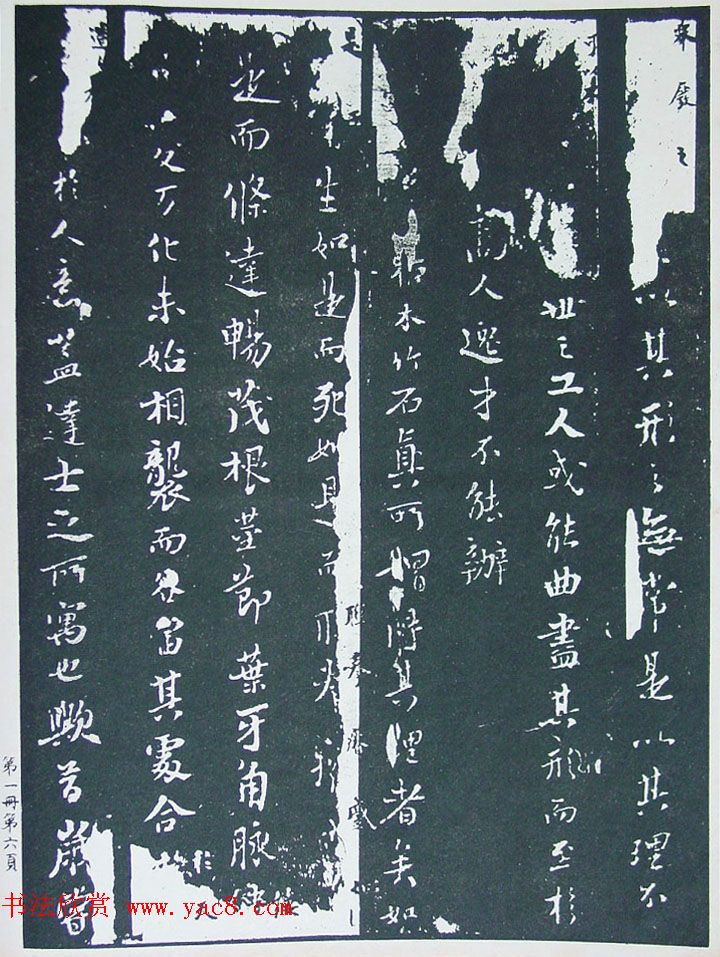 以其形之無常是以其理不
世之工人或能曲盡其形而至於
高人逸才不能辦
枯木竹石真所謂得其理者矣如
生如是而死如是而
是而條達暢茂根莖節葉牙角脈
變万化未始相襲而各當其處合於
於人意蓋達士之所寓也歟昔歲嘗
第一冊第六頁
书法欣赏 www.yac8.com